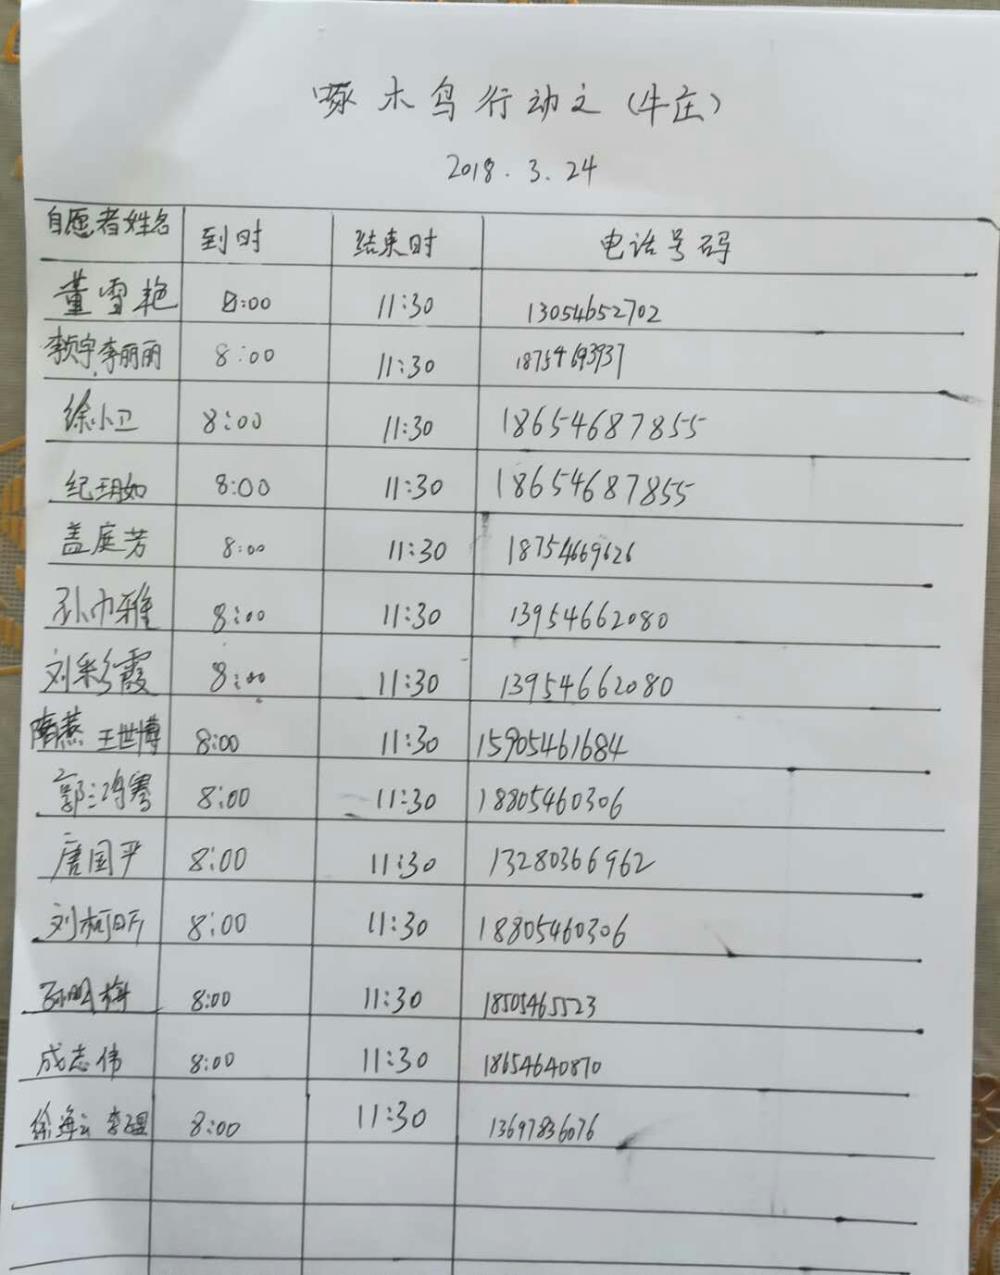 啄木鸟行动之(牛庄)
2018.3.24
自愿者姓名 到时 结束时 电话号码
董雪艳 8:00 11:30 13054652702
李贞宇 李丽丽 8:00 11:30 18754693937
徐小卫 8:00 11:30 18654687855
纪玥如 8:00 11:30 18654687855
盖庭芳 8:00 11:30 18754669626
孙巾雅 8:00 11:30 13954662080
刘彩霞 8:00 11:30 13954662080
隋燕 王世博 8:00 11:30 15905461684
郭鸿骞 8:00 11:30 18805460306
唐国严 8:00 11:30 13280366962
刘柯昕 8:00 11:30 18805460306
孙明梅 8:00 11:30 18505465523
成志伟 8:00 11:30 18654640870
徐海云 8:00 11:30 13697836076